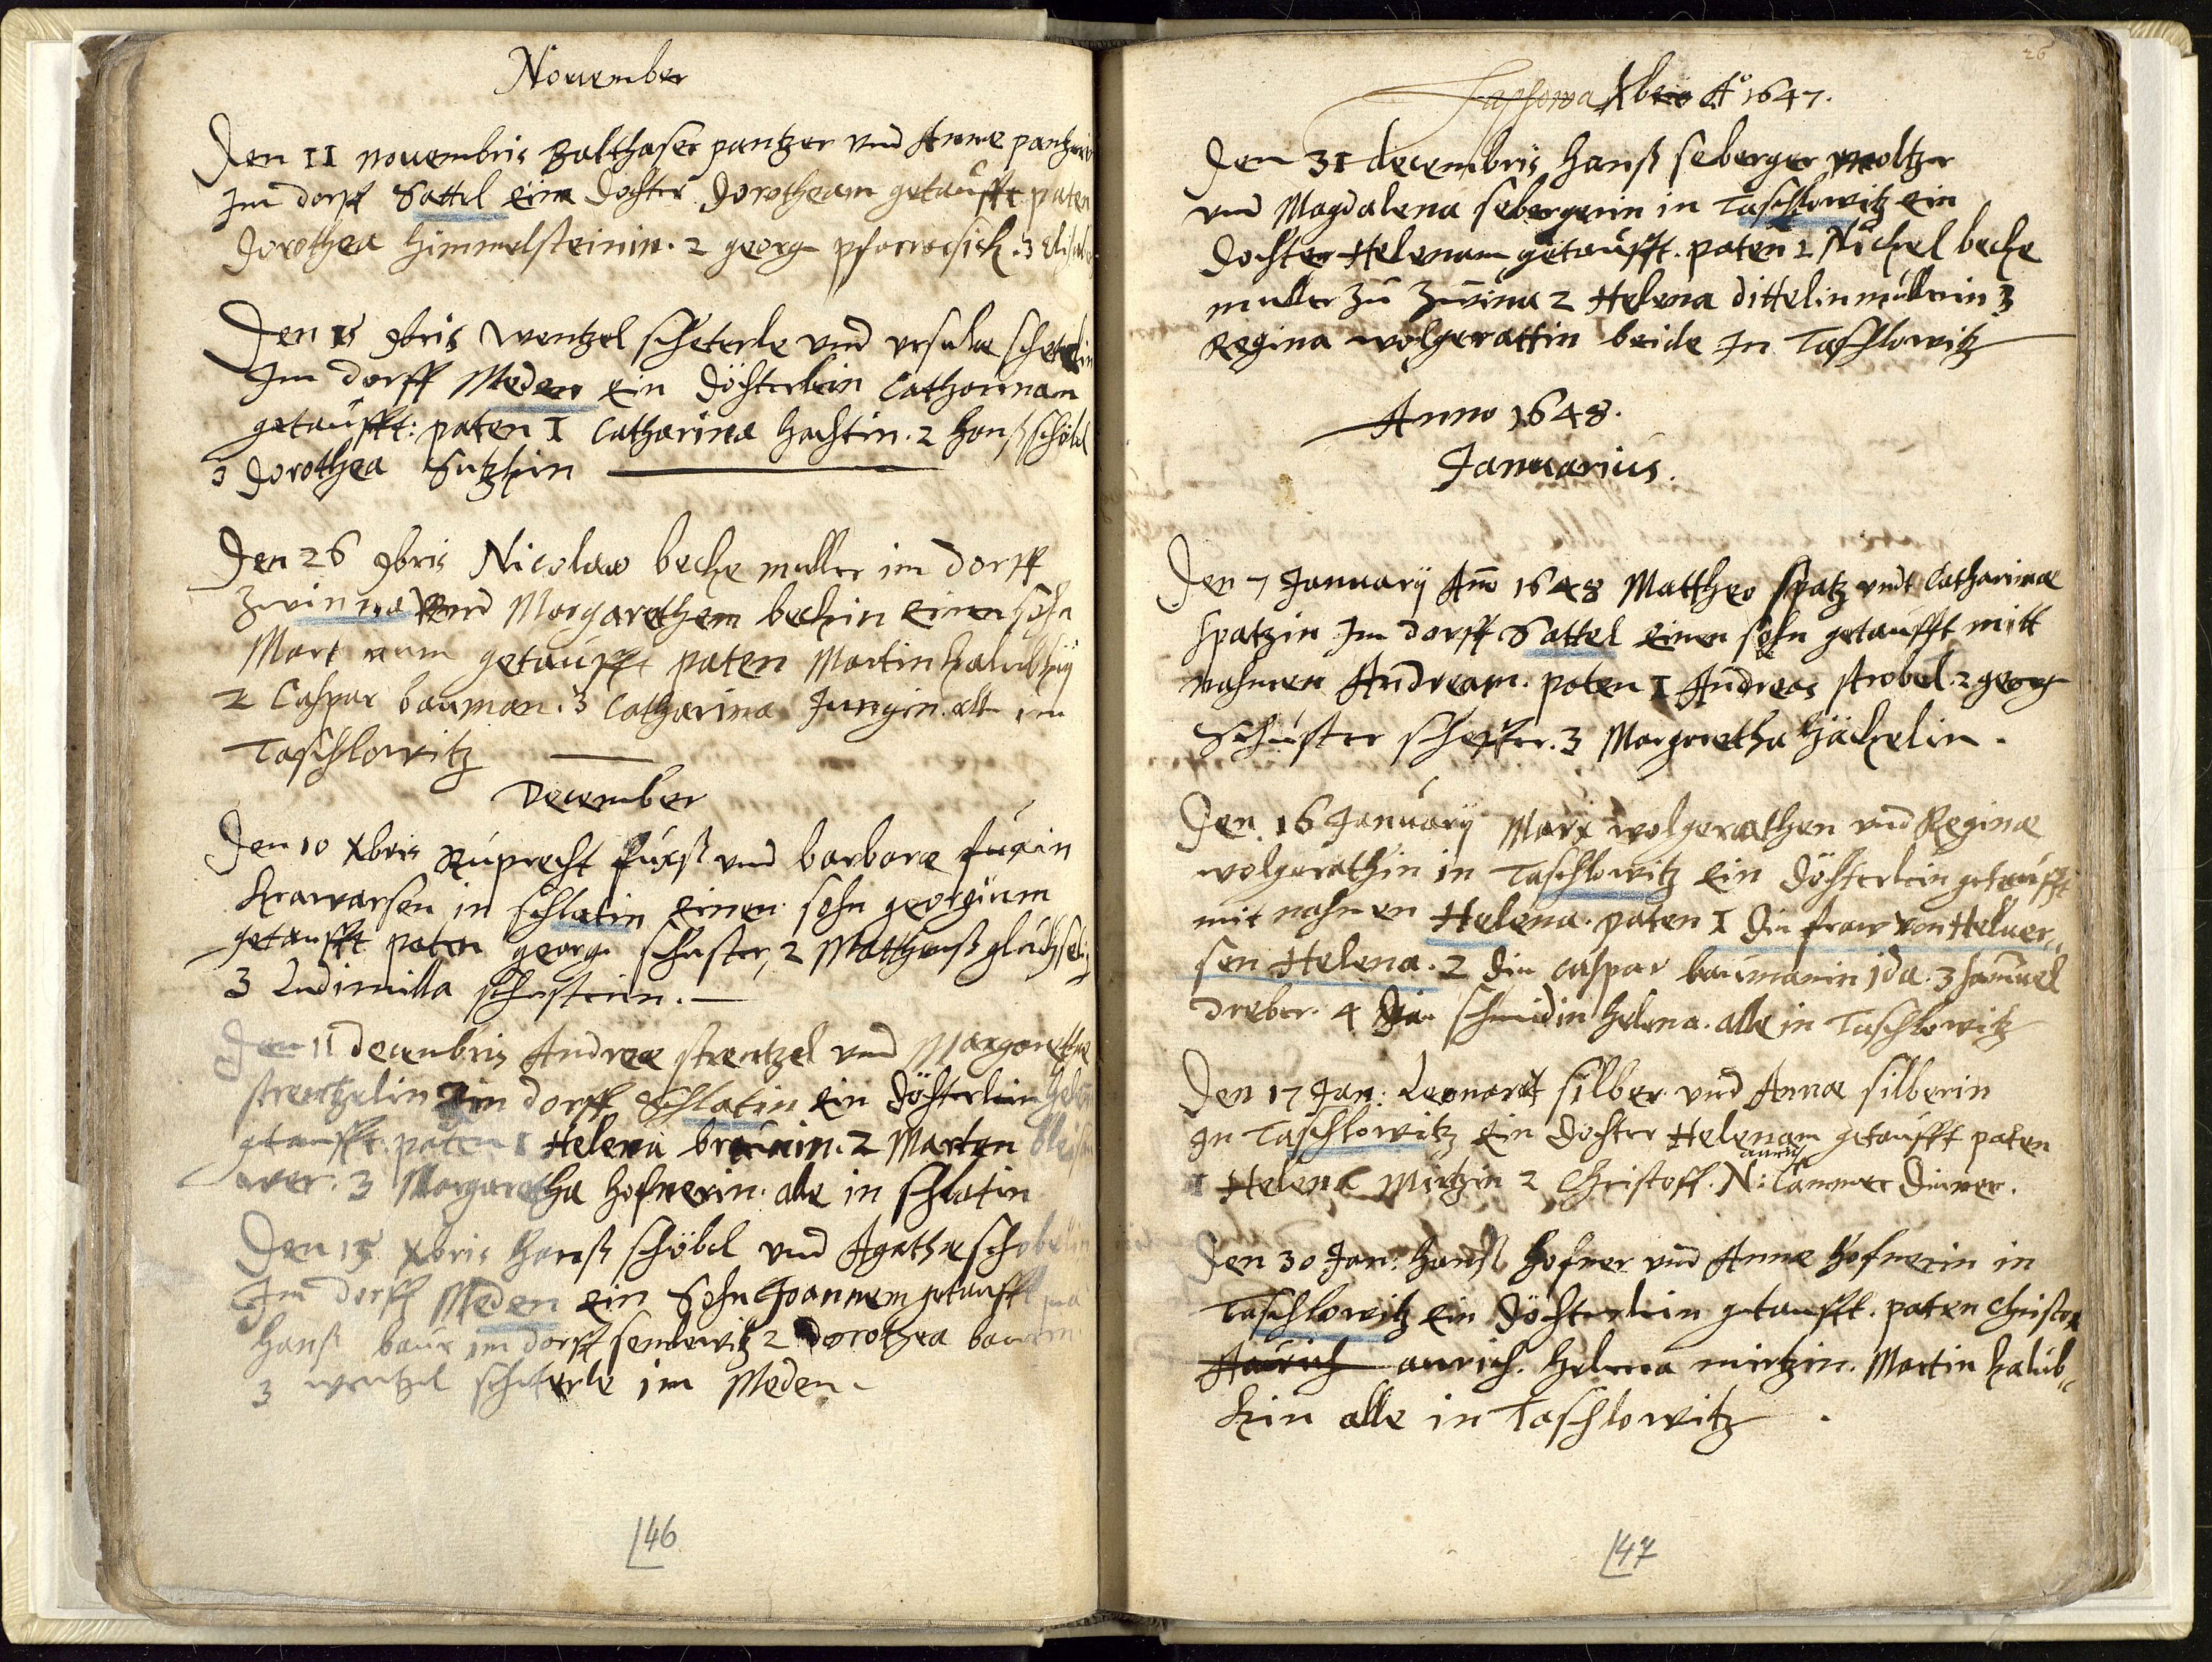 November
Den 11 novembris Balthaser pantzer vnd Anne
Im dorff Sattel eine dochter Dorotheam getaufft paten
Dorothea Himmelsteinin. 2 georg 3
Den 15 9bris Wentzel scheterle vnd vrsulae
Im dorff Meden ein döchterlein Catharinam
getaufft: paten 1 Catharina Hachtin. 2 Hanß schöbel
3 Dorothea
Den 26 9bris Nicolao becke muller im dorff
Zwinna vnd Margarethem beckin einen sohn
Mart num getaufft paten Martin
2 Caspar bauman. 3 Catharina Jungin. alle im
Taschlowitz
December
Den 10 Xbris Ruprecht fuxß vnd barbarae fuxin
in schlatin einen sohn georgium
getaufft paten georg schuster, 2 Mattheuß
3 Ludimilla schusterin.
Den 11 decenbris Andreae strentzel vnd Margarethae
strentzelin Im dorff Schlatin ein döchterlein
getaufft. paten 1 Helena braunin. 2 Marten
wer. 3 Margaretha Hofnerin. alle in schlatin
Den 15 Xbris Hanß schöbel vnd Agathae schobelin
Im dorff Meden ein Sohn Joannem getaufft
Hanß baur im dorff semlewitz 2 dorothea
3 wentzel scheterle im Meden.
46
26
Xbris Ao 1647.
Den 31 decembris Hanß seberger
vnd Magdalena sebergerin in Taschlowitz ein
dochter Helenam getaufft. paten 1 Nickel becke
muller zu Zwina 2 Helena dittelin mullerin 3
Regina wolgerattin beide In Taschlowitz
Anno 1648.
Januarius.
Den 7 Januarÿ Ano 1648 Mattheo spatz vndt Catharinae
spatzin Im dorff Sattel einen sohn getaufft mitt
nahmen Andream. paten 1 Andreas strobel. 2 georg
Schuster scheffer. 3 Margretha Häckelin.
Den 16 Januarÿ Marx wolgerathen vnd Reginae
wolgerathin in Taschlowitz ein döchterlein getaufft
mit nahmen Helena. paten 1 die fraw von Heluer„
sen Helena. 2 die Caspar baumanin jda. 3 samuel
dreber. 4 die schmidin Helena. alle in Taschlowitz
Den 17 Jan: Leonardt silber vnd Annae silberin
In Taschlowitz ein dochter Helenam getaufft paten
aurich
1 Helena Mirtzin 2 Christoff. N: Cammer diener.
Den 30 Jan: Hanß Hofner vnd Annae Hofnerin in
Taschlowitz ein döchterlein getaufft. paten Christox
Aurich aurich. Helena mirtzin. Martin halub„
kin alle in Taschlowitz.
47